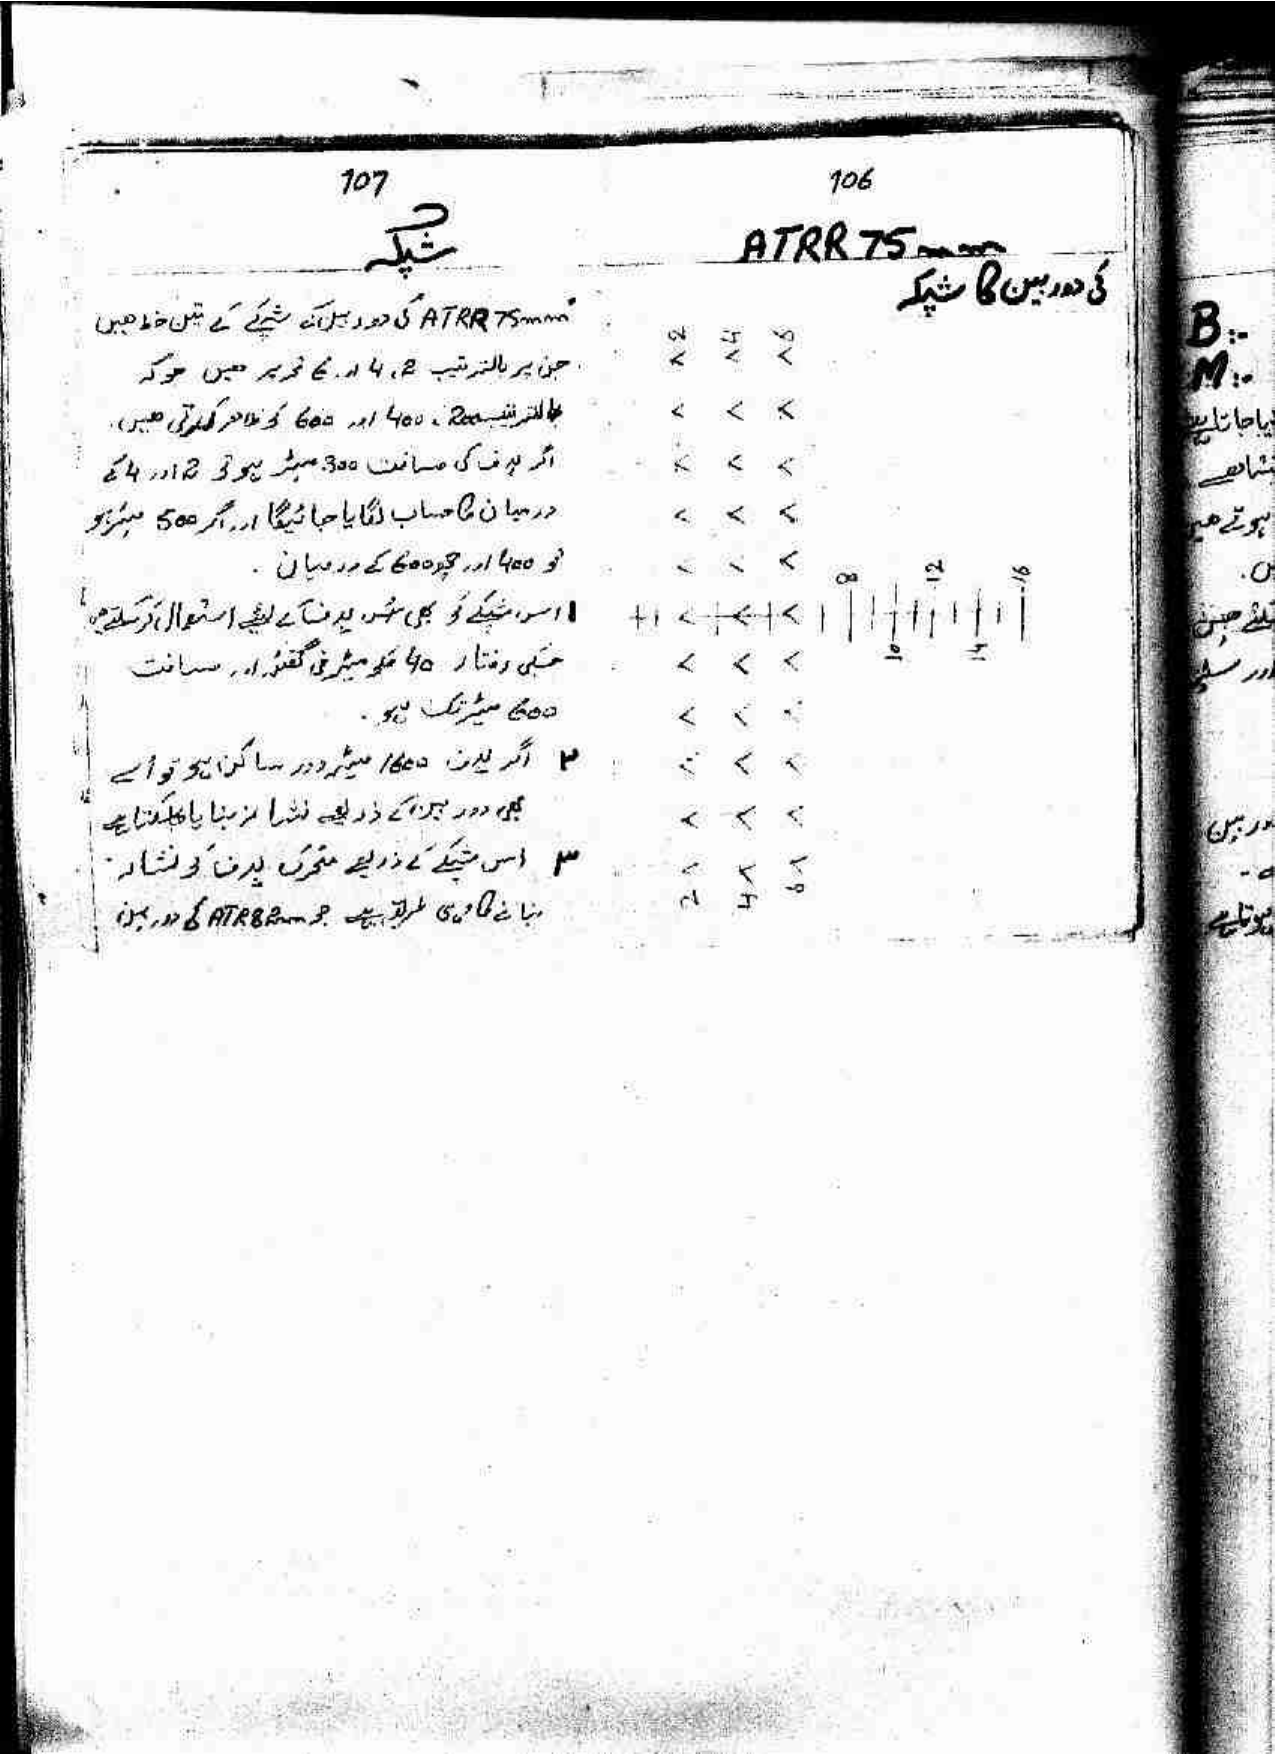 106
ATRR 75mm
کی دوربین کا شپکہ
2 4 6
8 12 16
10 14
2 4 6
107
شپکہ
ATRR 75mm کی دوربین کے شپکے کے تین خط ھیں
جن پر بالترتیب 2، 4 اور 6 تحریر ھیں جو کہ
بالترتیب 200، 400 اور 600 کو ظاھر کرتی ھیں۔
اگر ہدف کی مسافت 300 میٹر ہو تو 2 اور 4 کے
درمیان کا حساب لگایا جائیگا اور اگر 500 میٹر ہو
تو 400 اور 600 کے درمیان۔
۱ اس شپکے کو بھی ہدف کے لئے استعمال کر سکتے
جسکی رفتار 40 کلو میٹر فی گھنٹہ اور مسافت
600 میٹر تک ہو۔
۲ اگر ہدف 1600 میٹر دور ساکن ہو تو اسے
بھی دوربین کے ذریعے نشانہ بنایا جاسکتا ہے
۳ اس شپکے کے ذریعے متحرک ہدف کو نشانہ
بنانے کا وہی طریقہ ہے جو ATR 82mm کی دوربین
B:-
M:-